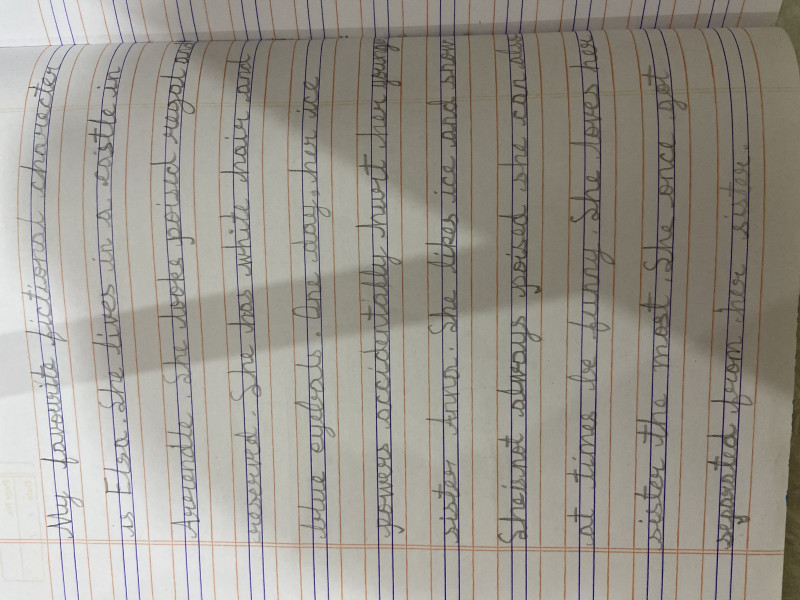 My favourite fictional charecter
is Elsa. She lives in a castle in
Arrendle. She looks poised regal and
reserved. She has white hair and
blue eyebals. One day, her ice
powers accidentally hurt her young
sister Anna. She likes ice and snow
She's not always poised she can also
at times be funny. She loves her
sister the most. She once got
seprated from her sister.